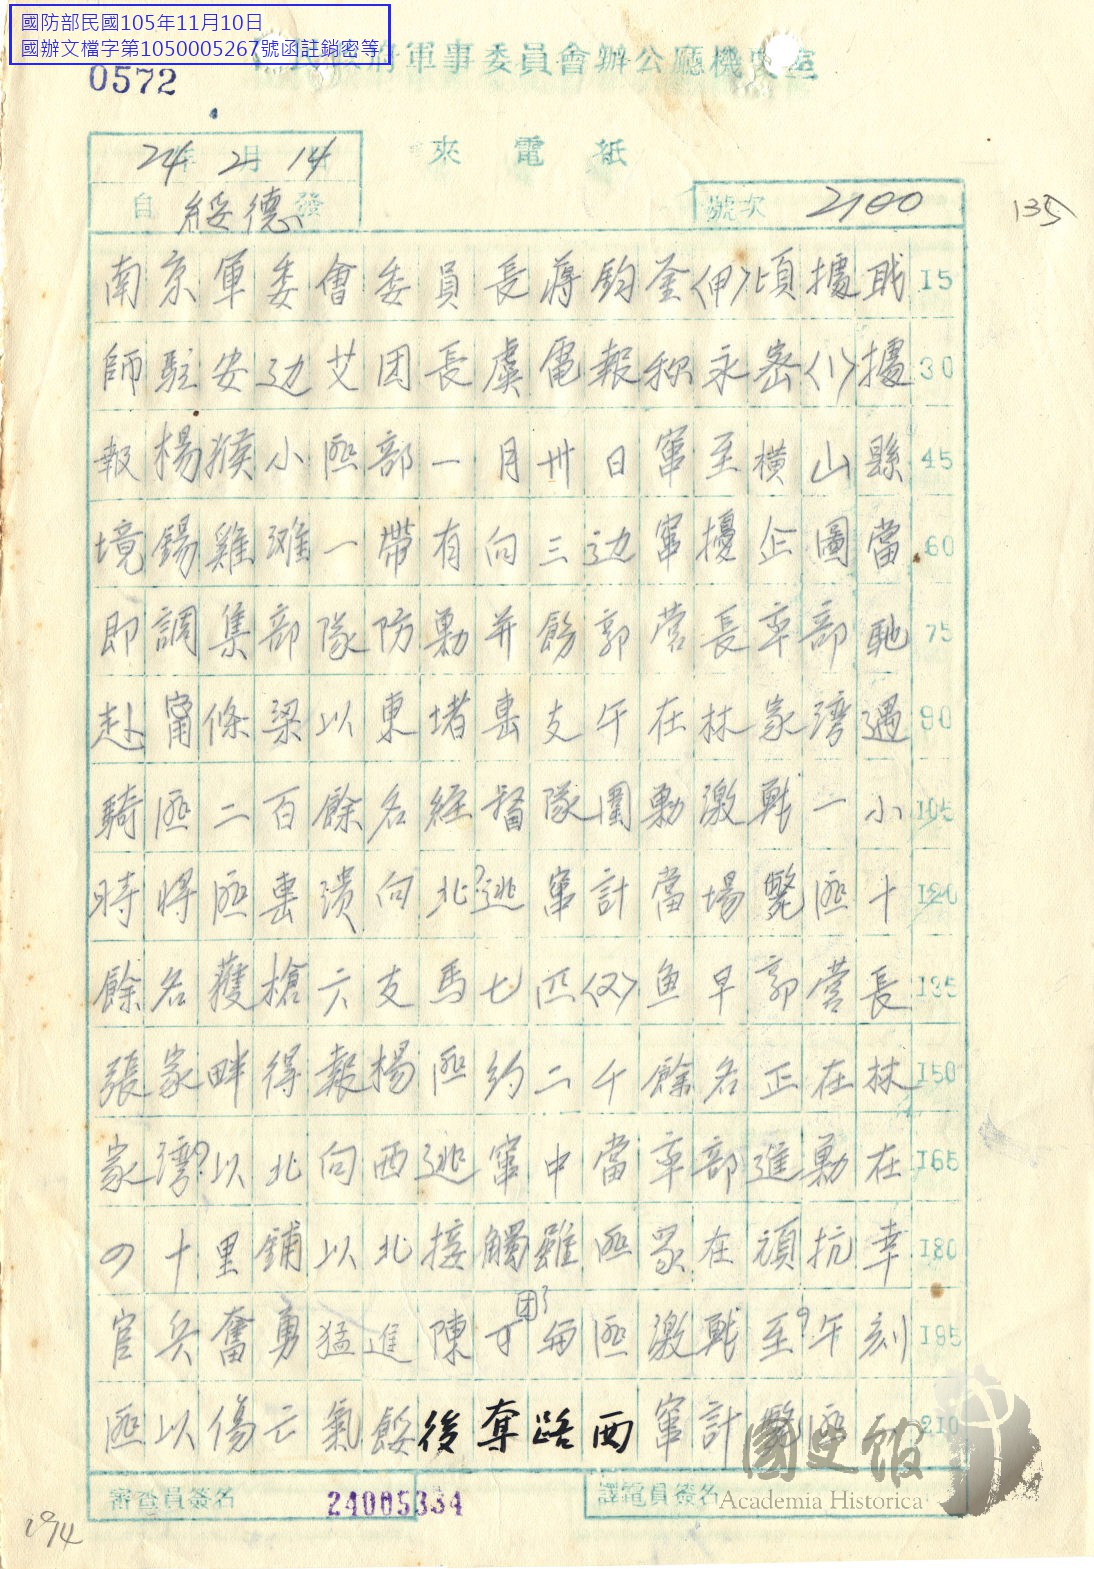 國防部民國105年11月10日
國辦文檔字第1050005267號函註銷密等
0572
國民政府軍事委員會辦公廳機要室
來電紙
24年2月14日
自綏德發
號次 2100
135
南京軍委會委員長蔣鈞鉴〈甲〉頃據職 15
師駐安边艾团長虞電報称永密〈1〉據 30
報楊猴小匪部一月卅日竄至橫山縣 45
境錫雞灘一帶有向三边竄擾企圖當 60
即調集部隊防勦并飭郭营長率部馳 75
赴甯條梁以東堵擊支午在林家湾遇 90
騎匪二百餘名經督隊圍勦激戰一小 105
時將匪擊潰向北?逃竄計當場斃匪十 120
餘名獲槍六支馬七匹〈2〉魚早郭营長 135
張家畔得報楊匪約二千餘名正在林 150
家湾?以北向西逃竄中當率部進勦在 165
四十里鋪以北接觸雖匪眾在頑抗幸 180
官兵奮勇猛進陳団?匪激戰至?午刻 195
匪以傷亡氣餒後奪路西竄計斃匪 210
審查員簽名
24005334
譯電員簽名
194
國史館
Academia Historica